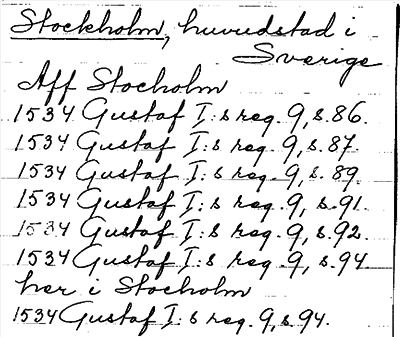 Stockholm, huvudstad i
Sverige
Aff Stocholm
1534 Gustaf I:s reg. 9, s. 86.
1534 Gustaf I:s reg. 9, s. 87.
1534 Gustaf I:s reg. 9, s. 89.
1534 Gustaf I:s reg. 9, s. 91.
1534 Gustaf I:s reg. 9, s. 92.
1534 Gustaf I:s reg. 9, s. 94
her i Stocholm
1534 Gustaf I:s reg. 9, s. 94.